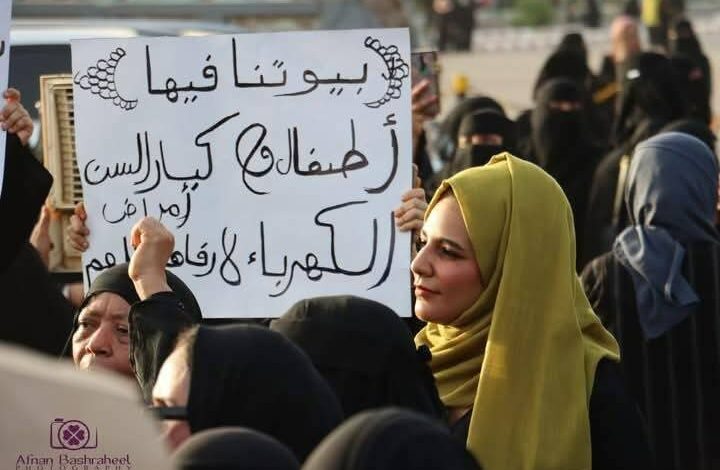 بيوتنا فيها
أطفال و كبار السن
أمراض
الكهرباء لا
Afnan Bashraheel
PHOTOGRAPHY